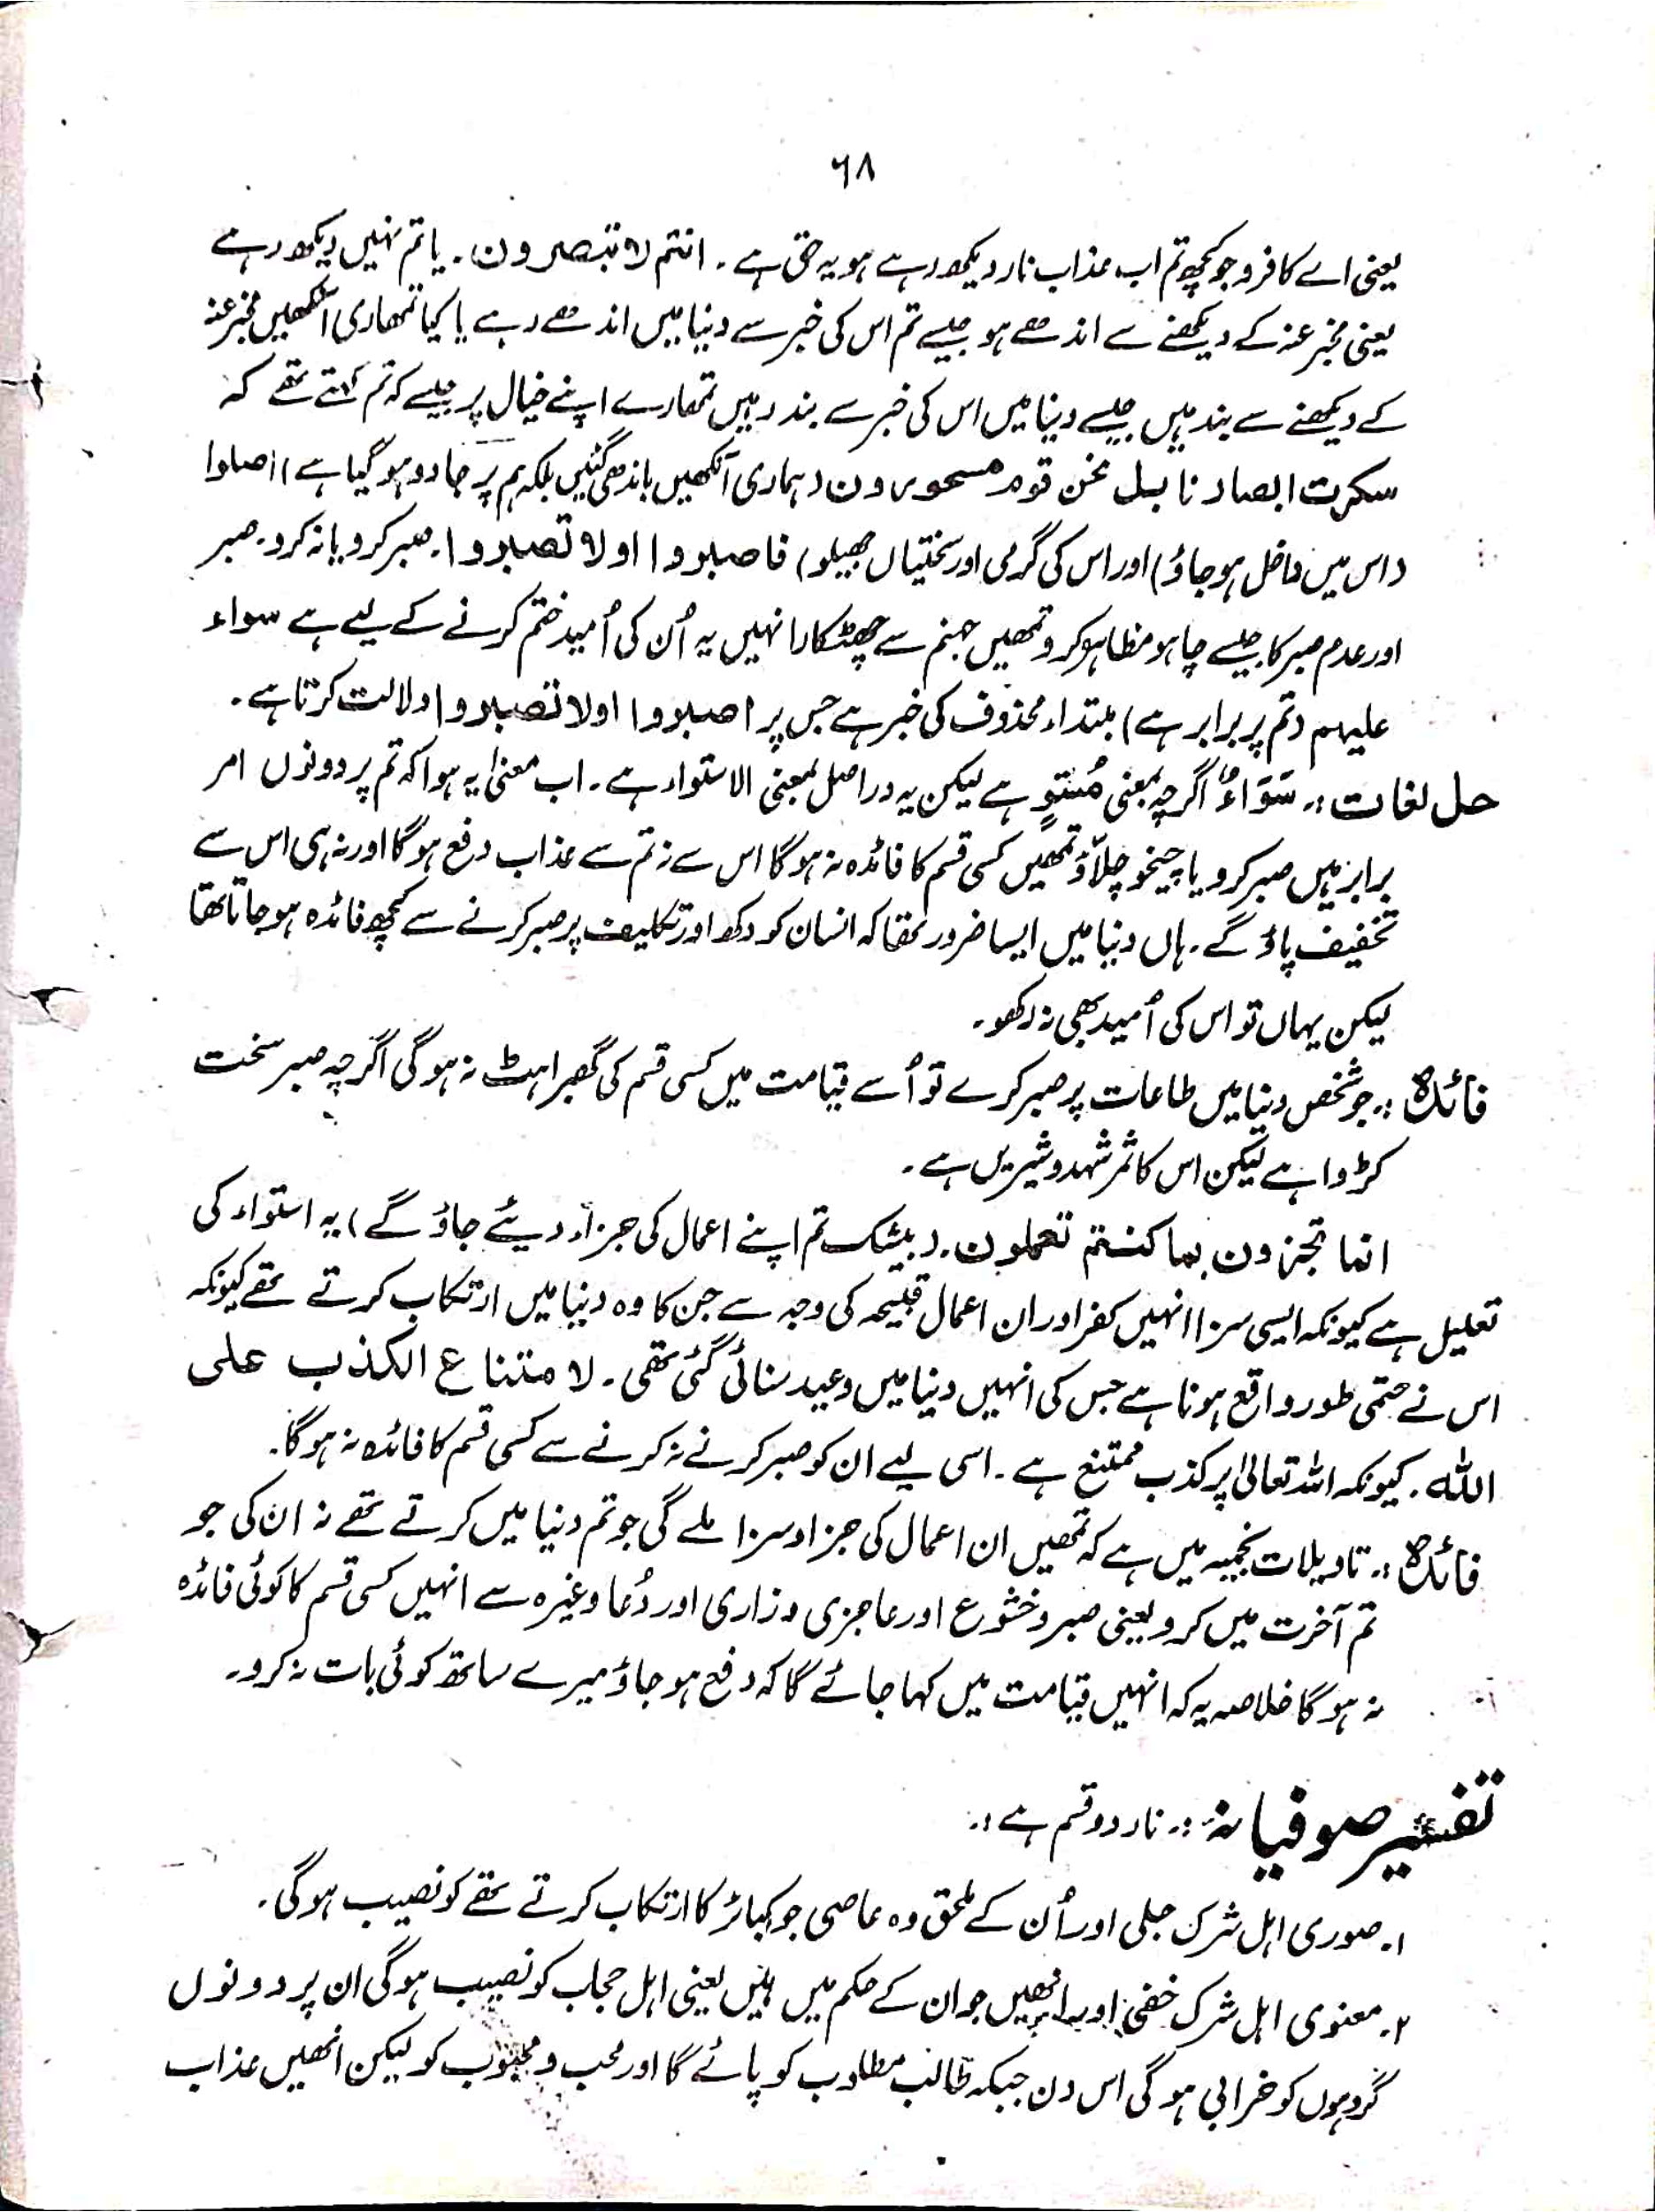 ۶۸
یعنی اے کافرو جو کچھ تم اب عذاب نار دیکھ رہے ہو یہ حق ہے۔ انتم لا تبصرون۔ یا تم نہیں دیکھ رہے
یعنی مخبر عنہ کے دیکھنے سے اندھے ہو جیسے تم اس کی خبر سے دنیا میں اندھے رہے یا کیا تمھاری آنکھیں مخبر عنہ
کے دیکھنے سے بند ہیں جیسے دنیا میں اس کی خبر سے بند رہیں تمھارے اپنے خیال پر جیسے کہ تم کہتے تھے کہ
سکرت ابصارنا بل نحن قوم مسحورون (ہماری آنکھیں باندھی گئیں بلکہ ہم پر جادو ہو گیا ہے) اصلوا
(اس میں داخل ہو جاؤ) اور اس کی گرمی اور سختیاں جھیلو) فاصبروا اولا تصبروا۔ صبر کرو یا نہ کرو۔ صبر
اور عدم صبر کا جیسے چاہو مظاہرہ کرو تمھیں جہنم سے چھٹکارا نہیں یہ اُن کی اُمید ختم کرنے کے لیے ہے سواء
علیہم (تم پر برابر ہے) مبتداء محذوف کی خبر ہے جس پر اصبروا اولا تصبروا دلالت کرتا ہے۔
حل لغات :۔ سَوَاءٌ اگرچہ بمعنی مُستوٍ ہے لیکن یہ دراصل بمعنی الاستواء ہے۔ اب معنیٰ یہ ہوا کہ تم پر دونوں امر
برابر ہیں صبر کرو یا چیخو چلاّؤ تمھیں کسی قسم کا فائدہ نہ ہو گا اس سے نہ تم سے عذاب دفع ہو گا اور نہ ہی اس سے
تخفیف پاؤ گے۔ ہاں دنیا میں ایسا ضرور تھا کہ انسان کو دکھ اور تکلیف پر صبر کرنے سے کچھ فائدہ ہو جاتا تھا
لیکن یہاں تو اس کی اُمید بھی نہ رکھو۔
فائدہ :۔ جو شخص دنیا میں طاعات پر صبر کرے تو اُسے قیامت میں کسی قسم کی گھبراہٹ نہ ہو گی اگرچہ صبر سخت
کڑوا ہے لیکن اس کا ثمر شہد و شیریں ہے۔
انما تجزون بما کنتم تعملون۔ (بیشک تم اپنے اعمال کی جزاء دیئے جاؤ گے) یہ استواء کی
تعلیل ہے کیونکہ ایسی سزا انہیں کفر اور ان اعمال قبیحہ کی وجہ سے جن کا وہ دنیا میں ارتکاب کرتے تھے کیونکہ
اس نے حتمی طور واقع ہونا ہے جس کی انہیں دنیا میں وعید سنائی گئی تھی۔ لامتناع الکذب علی
اللہ۔ کیونکہ اللہ تعالیٰ پر کذب ممتنع ہے۔ اسی لیے ان کو صبر کرنے نہ کرنے سے کسی قسم کا فائدہ نہ ہو گا۔
فائدہ :۔ تاویلات نجمیہ میں ہے کہ تمھیں ان اعمال کی جزا و سزا ملے گی جو تم دنیا میں کرتے تھے نہ ان کی جو
تم آخرت میں کرو یعنی صبر و خشوع اور عاجزی و زاری اور دُعا وغیرہ سے انہیں کسی قسم کا کوئی فائدہ
نہ ہو گا خلاصہ یہ کہ انہیں قیامت میں کہا جائے گا کہ دفع ہو جاؤ میرے ساتھ کوئی بات نہ کرو۔
تفسیر صوفیانہ :۔ نار دو قسم ہے :۔
۱۔ صوری اہل شرک جلی اور اُن کے ملحق وہ عاصی جو کبائر کا ارتکاب کرتے تھے کو نصیب ہو گی۔
۲۔ معنوی اہل شرک خفی اور انھیں جو ان کے حکم میں ہیں یعنی اہل حجاب کو نصیب ہو گی ان پر دونوں
گروہوں کو خرابی ہو گی اس دن جبکہ طالب مطلوب کو پائے گا اور محب و محبوب کو لیکن انھیں عذاب